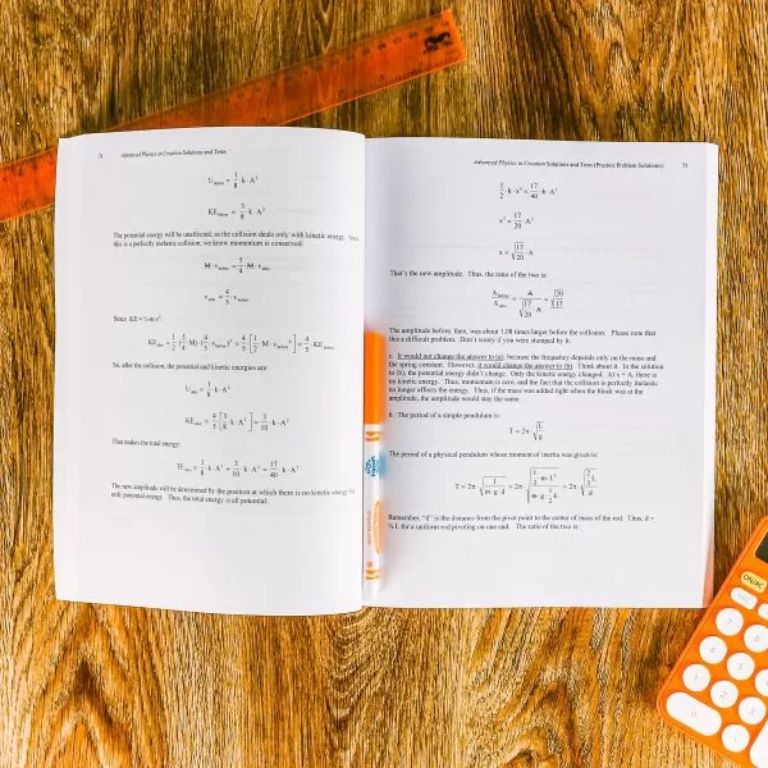 Advanced Physics in Creation Solutions and Tests
U_before = 1/8 · k · A²
KE_before = 3/8 · k · A²
The potential energy will be unaffected, as the collision deals only with kinetic energy. Since
this is a perfectly inelastic collision, we know momentum is conserved:
M · v_before = 5/4 · M · v_after
v_after = 4/5 · v_before
Since KE = ½·m·v²:
KE_after = 1/2 · (5/4 · M) · (4/5 · v_before)² = 4/5 · [1/2 · M · v_before²] = 4/5 · KE_before
So, after the collision, the potential and kinetic energies are:
U_after = 1/8 · k · A²
KE_after = 4/5 · [3/8 · k · A²] = 3/10 · k · A²
That makes the total energy:
TE_after = 1/8 · k · A² + 3/10 · k · A² = 17/40 · k · A²
The new amplitude will be determined by the position at which there is no kinetic energy
only potential energy. Thus, the total energy is all potential:
Advanced Physics in Creation Solutions and Tests (Practice Problem Solutions)
1/2 · k · x² = 17/40 · k · A²
x² = 17/20 · A²
x = √(17/20) · A
That's the new amplitude. Thus, the ratio of the two is:
A_before / A_after = A / (√(17/20) · A) = √20 / √17
The amplitude before, then, was about 1.08 times larger before the collision. Please note that
this a difficult problem. Don't worry if you were stumped by it.
c. It would not change the answer to (a), because the frequency depends only on the mass and
the spring constant. However, it would change the answer to (b). Think about it. In the solution
to (b), the potential energy didn't change. Only the kinetic energy changed. At x = A, there is
no kinetic energy. Thus, momentum is zero, and the fact that the collision is perfectly inelastic
no longer affects the energy. Thus, if the mass was added right when the block was at the
amplitude, the amplitude would stay the same.
The period of a simple pendulum is:
T = 2π · √(L/g)
The period of a physical pendulum whose moment of inertia was given is:
T = 2π · √(I/(m·g·d)) = 2π ·
Remember, "d" is the distance from the pivot point to the center of mass of the rod. Thus, d =
½·L for a uniform rod pivoting on one end. The ratio of the two is:
ON/AC
7
4
1
5
2
3
0